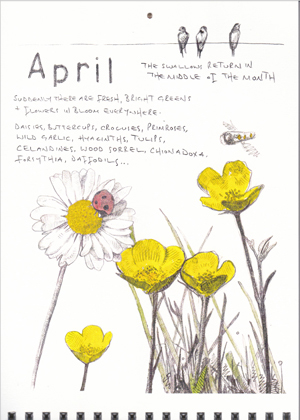 April
THE SWALLOWS RETURN IN
THE MIDDLE OF THE MONTH
SUDDENLY THERE ARE FRESH, BRIGHT GREENS
+ FLOWERS IN BLOOM EVERYWHERE.
DAISIES, BUTTERCUPS, CROCUSES, PRIMROSES,
WILD GARLIC, HYACINTHS, TULIPS,
CELANDINES, WOOD SORREL, CHIONADOXA,
FORSYTHIA, DAFFODILS...